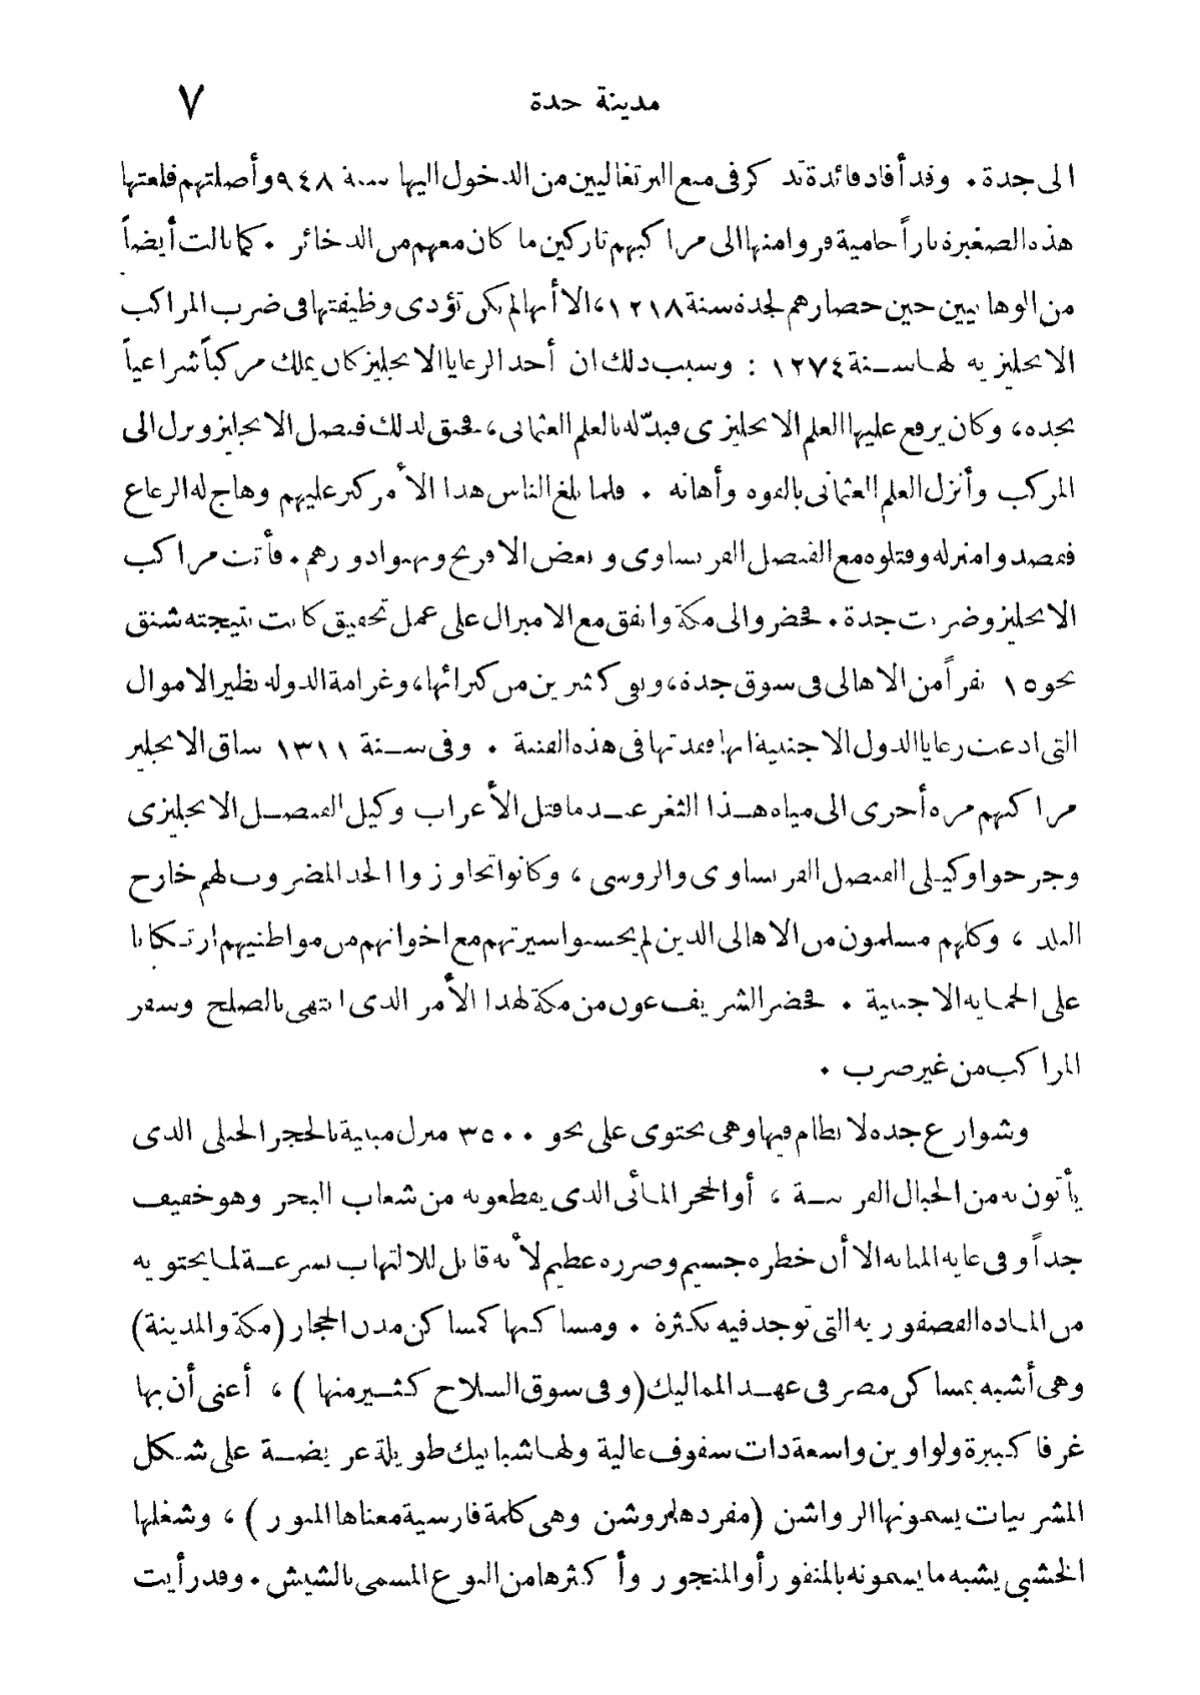 مدينة جدة ٧
الى جدة . وقد أفاد فائدة تذكر فى منع البرتغاليين من الدخول اليها سنة ٩٤٨ وأصلتهم قلعتها
هذه الصغيرة ناراً حامية فروا منها الى مراكبهم تاركين ما كان معهم من الذخائر . كما نالت أيضاً
من الوهابيين حين حصارهم لجدة سنة ١٢١٨ ، الا أنها لم تكن تؤدى وظيفتها فى ضرب المراكب
الانجليزيه لها سنة ١٢٧٤ : وسبب ذلك ان أحد الرعايا الانجليز كان يملك مركباً شراعياً
بجده ، وكان يرفع عليها العلم الانجليزى فبدّله بالعلم العثمانى ، فحنق لذلك قنصل الانجليز ونزل الى
المركب وأنزل العلم العثمانى بالقوه وأهانه . فلما بلغ الناس هذا الأمر كبر عليهم وهاج له الرعاع
فقصدوا منزله وقتلوه مع القنصل الفرنساوى وبعض الافرنج ونهبوا دورهم . فأتت مراكب
الانجليز وضربت جدة . فحضر والى مكة واتفق مع الاميرال على عمل تحقيق كانت نتيجته شنق
نحو ١٥ نفراً من الاهالى فى سوق جدة ، ونفى كثيرين من كبرائها ، وغرامة الدوله نظير الاموال
التى ادعت رعايا الدول الاجنبية انها فقدتها فى هذه الفتنة . وفى سنة ١٣١١ ساق الانجليز
مراكبهم مره أخرى الى مياه هذا الثغر عند ما قتل الأعراب وكيل القنصل الانجليزى
وجرحوا وكيلى القنصل الفرنساوى والروسى ، وكانوا تجاوزوا الحد المضروب لهم خارج
البلد ، وكلهم مسلمون من الاهالى الذين لم يحسنوا سيرتهم مع اخوانهم من مواطنيهم ارتكانا
على الحمايه الاجنبية . فحضر الشريف عون من مكة لهذا الأمر الذى انتهى بالصلح وسفر
المراكب من غير ضرب .
وشوارع جده لا نظام فيها وهى تحتوى على نحو ٣٥٠٠ منزل مبنية بالحجر الجبلى الذى
يأتون به من الجبال القريبة ، أو الحجر المائى الذى يقطعونه من شعاب البحر وهو خفيف
جداً وفى غايه المتانه الا أن خطره جسيم وضرره عظيم لأنه قابل للالتهاب بسرعة لما يحتويه
من الماده الفصفوريه التى توجد فيه بكثرة . ومساكنها كمساكن مدن الحجاز (مكة والمدينة)
وهى أشبه بمساكن مصر فى عهد المماليك (وفى سوق السلاح كثير منها) ، أعنى أن بها
غرفا كبيرة ولواوين واسعة ذات سقوف عالية ولها شبابيك طويلة عريضة على شكل
المشربيات يسمونها الرواشن (مفردها روشن وهى كلمة فارسية معناها المنور) ، وشغلها
الخشبى يشبه ما يسمونه بالمنقور أو المنجور وأكثرها من النوع المسمى بالشيش . وقد رأيت